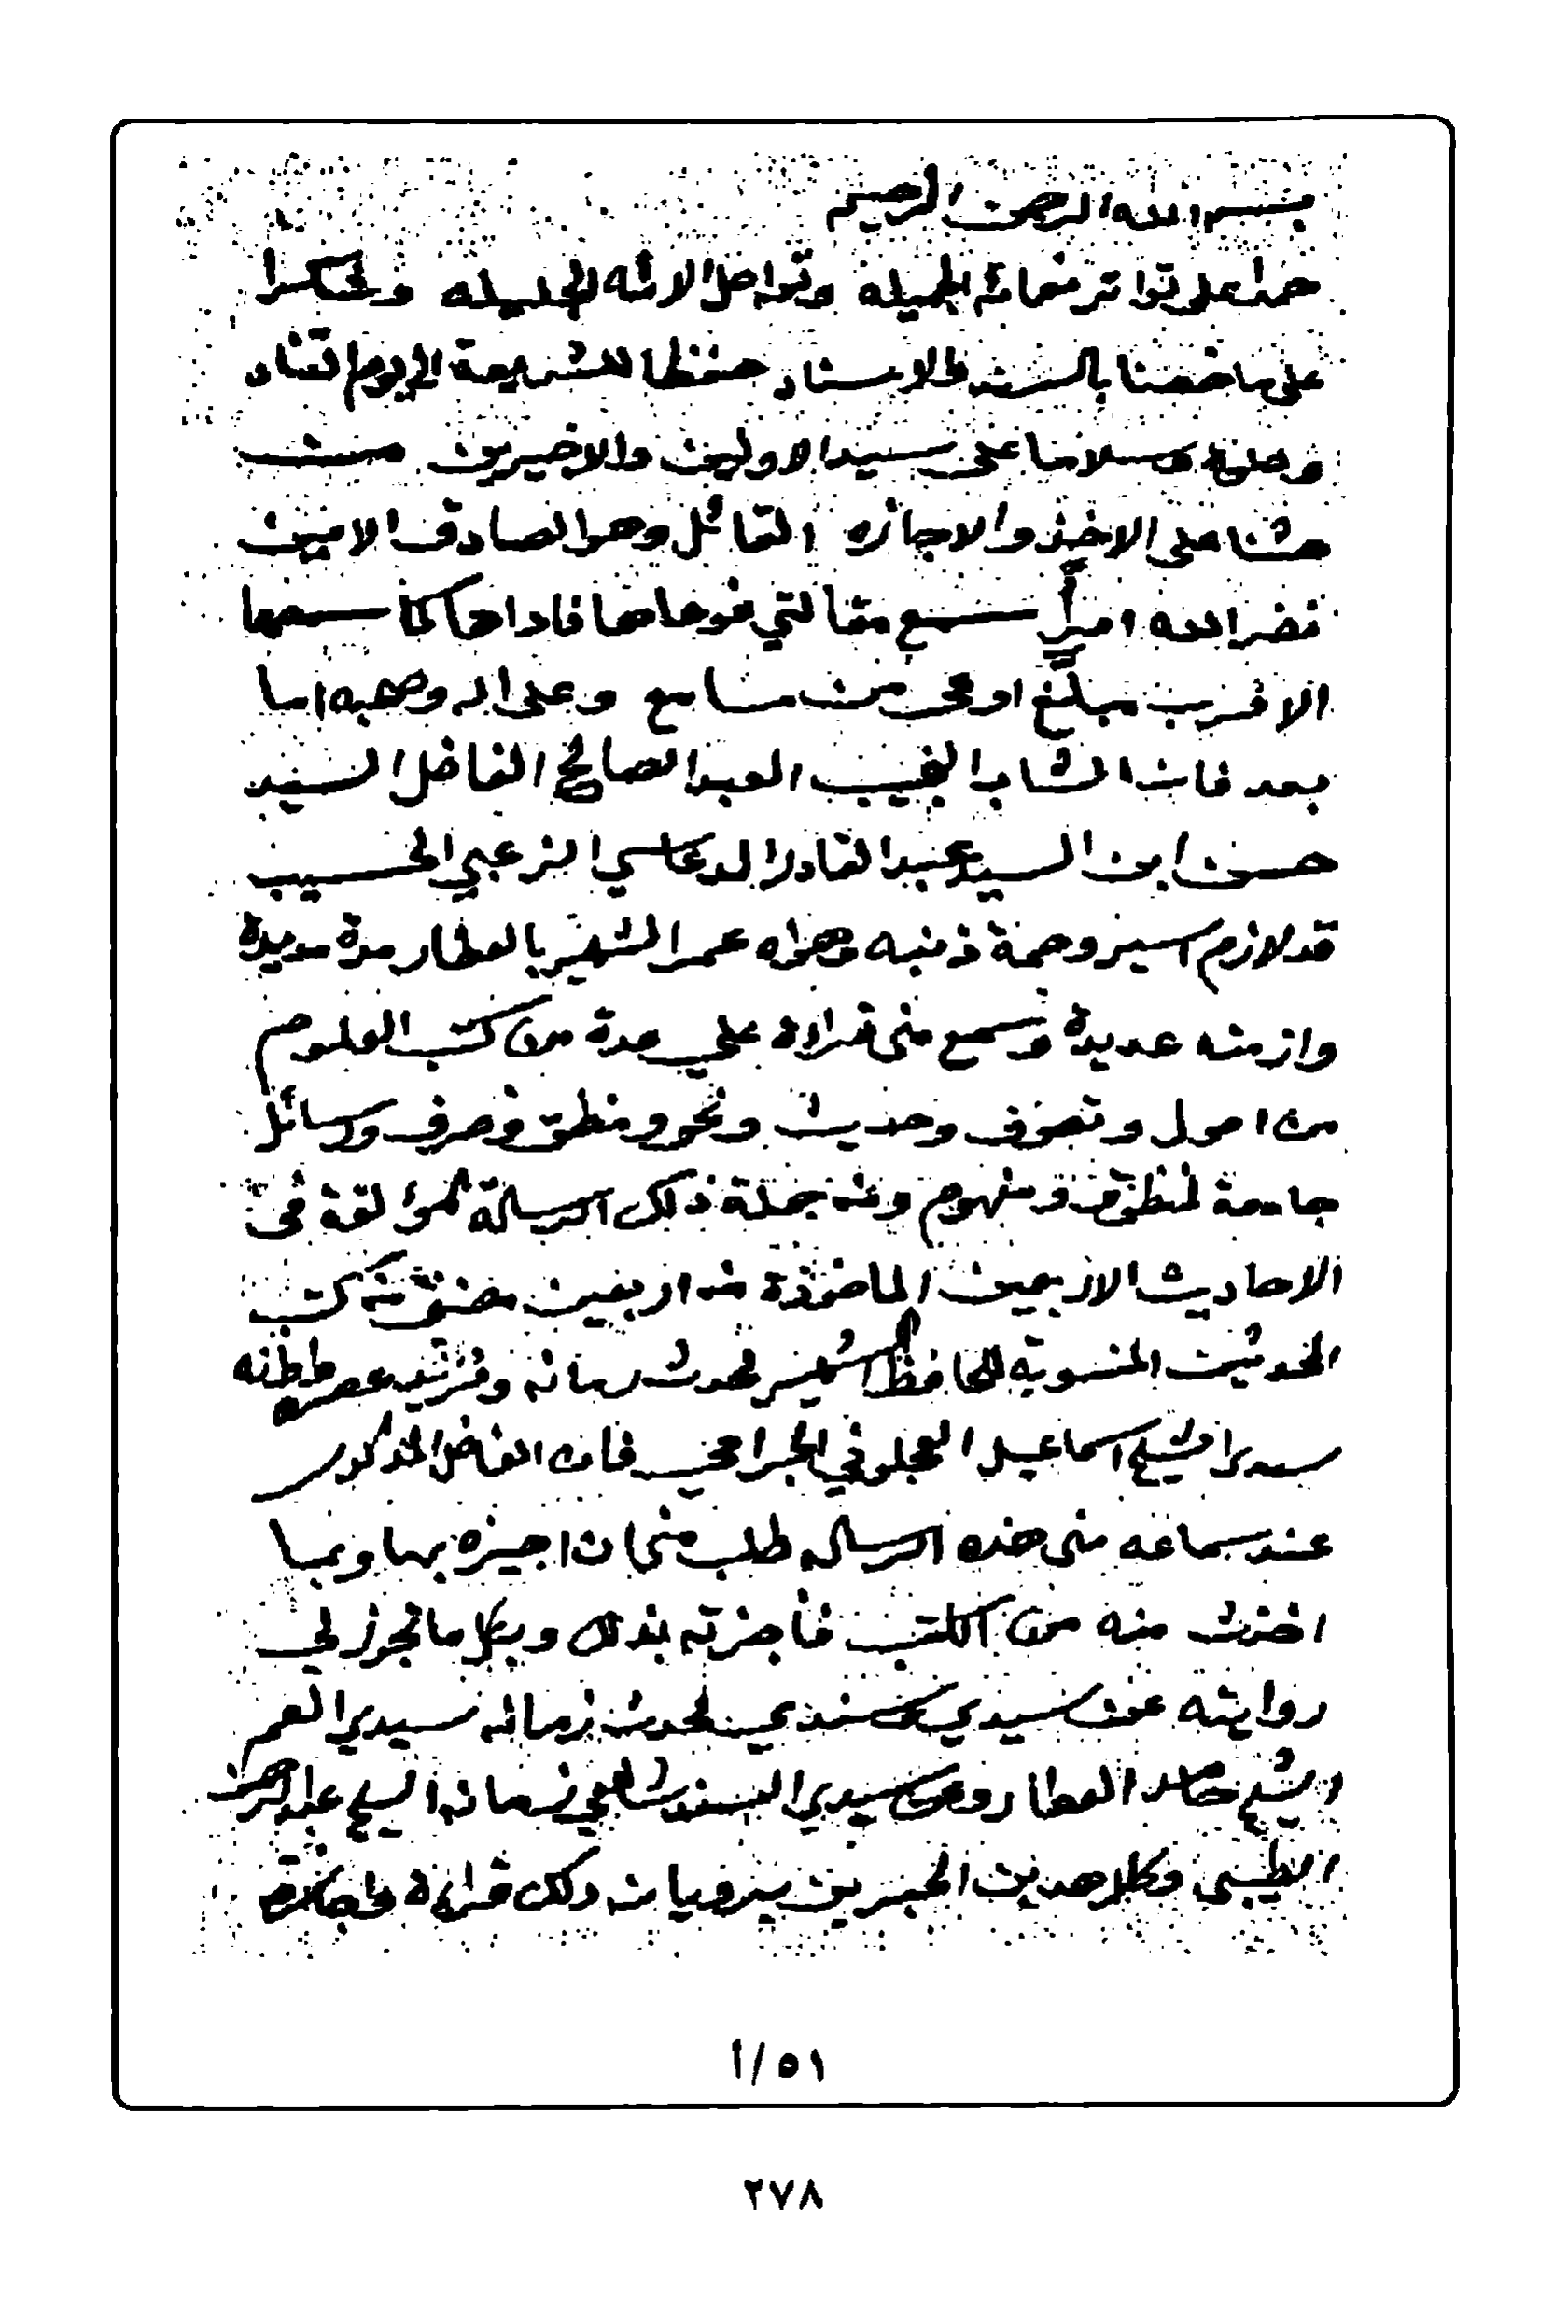 بسم الله الرحمن الرحيم
حمدا على تواتر نعمائه الجميله وتواصل الائه الجليله وشكرا
على ما خصنا بالسند والاسناد حفظا للشريعة الى يوم التناد
وصلاة وسلاما على سيد الاولين والاخيرين
حثنا على الاخذ والاجازه القائل وهو الصادق الامين
نضر الله امرأً سمع مقالتي فوعاها فاداها كما سمعها
الا فرب مبلَّغ اوعى من سامع وعلى اله وصحبه اما
بعد فان الشاب النجيب العبد الصالح الفاضل السيد
حسن ابن السيد عبد القادر الدكاسي الزعبي الحسيب
قد لازم اسير وصمة ذنبه وهواه عمر الشهير بالعطار مدة مديدة
وازمنه عديدة وسمع منى قراءة علي عدة من كتب العلوم
من اصول وتصوف وحديث ونحو ومنطق وصرف ورسائل
جامعة لمنطوق ومفهوم ومن جملة ذلك الرسالة المؤلفة في
الاحاديث الاربعين الماخوذة من اربعين مصنف من كتب
المحدثين المنسوبة للحافظ الشهير محدث زمانه وفريد عصره
سيدي الشيخ اسماعيل العجلوني الجراحي فان الفاضل المذكور
عند سماعه منى هذه الرساله طلب منى ان اجيزه بها وبما
اخذت منه من الكتب فاجزته بذلك وبكل ما تجوز لي
روايته عن سيدي محدث زمانه سيدي العم
الشيخ حامد العطار وعن سيدي السند شافعي زمانه الشيخ عبد الرحمن
الطيبي وكل هذين الحبرين يرويان ذلك قراءة واجازة
٥١/أ
٢٧٨